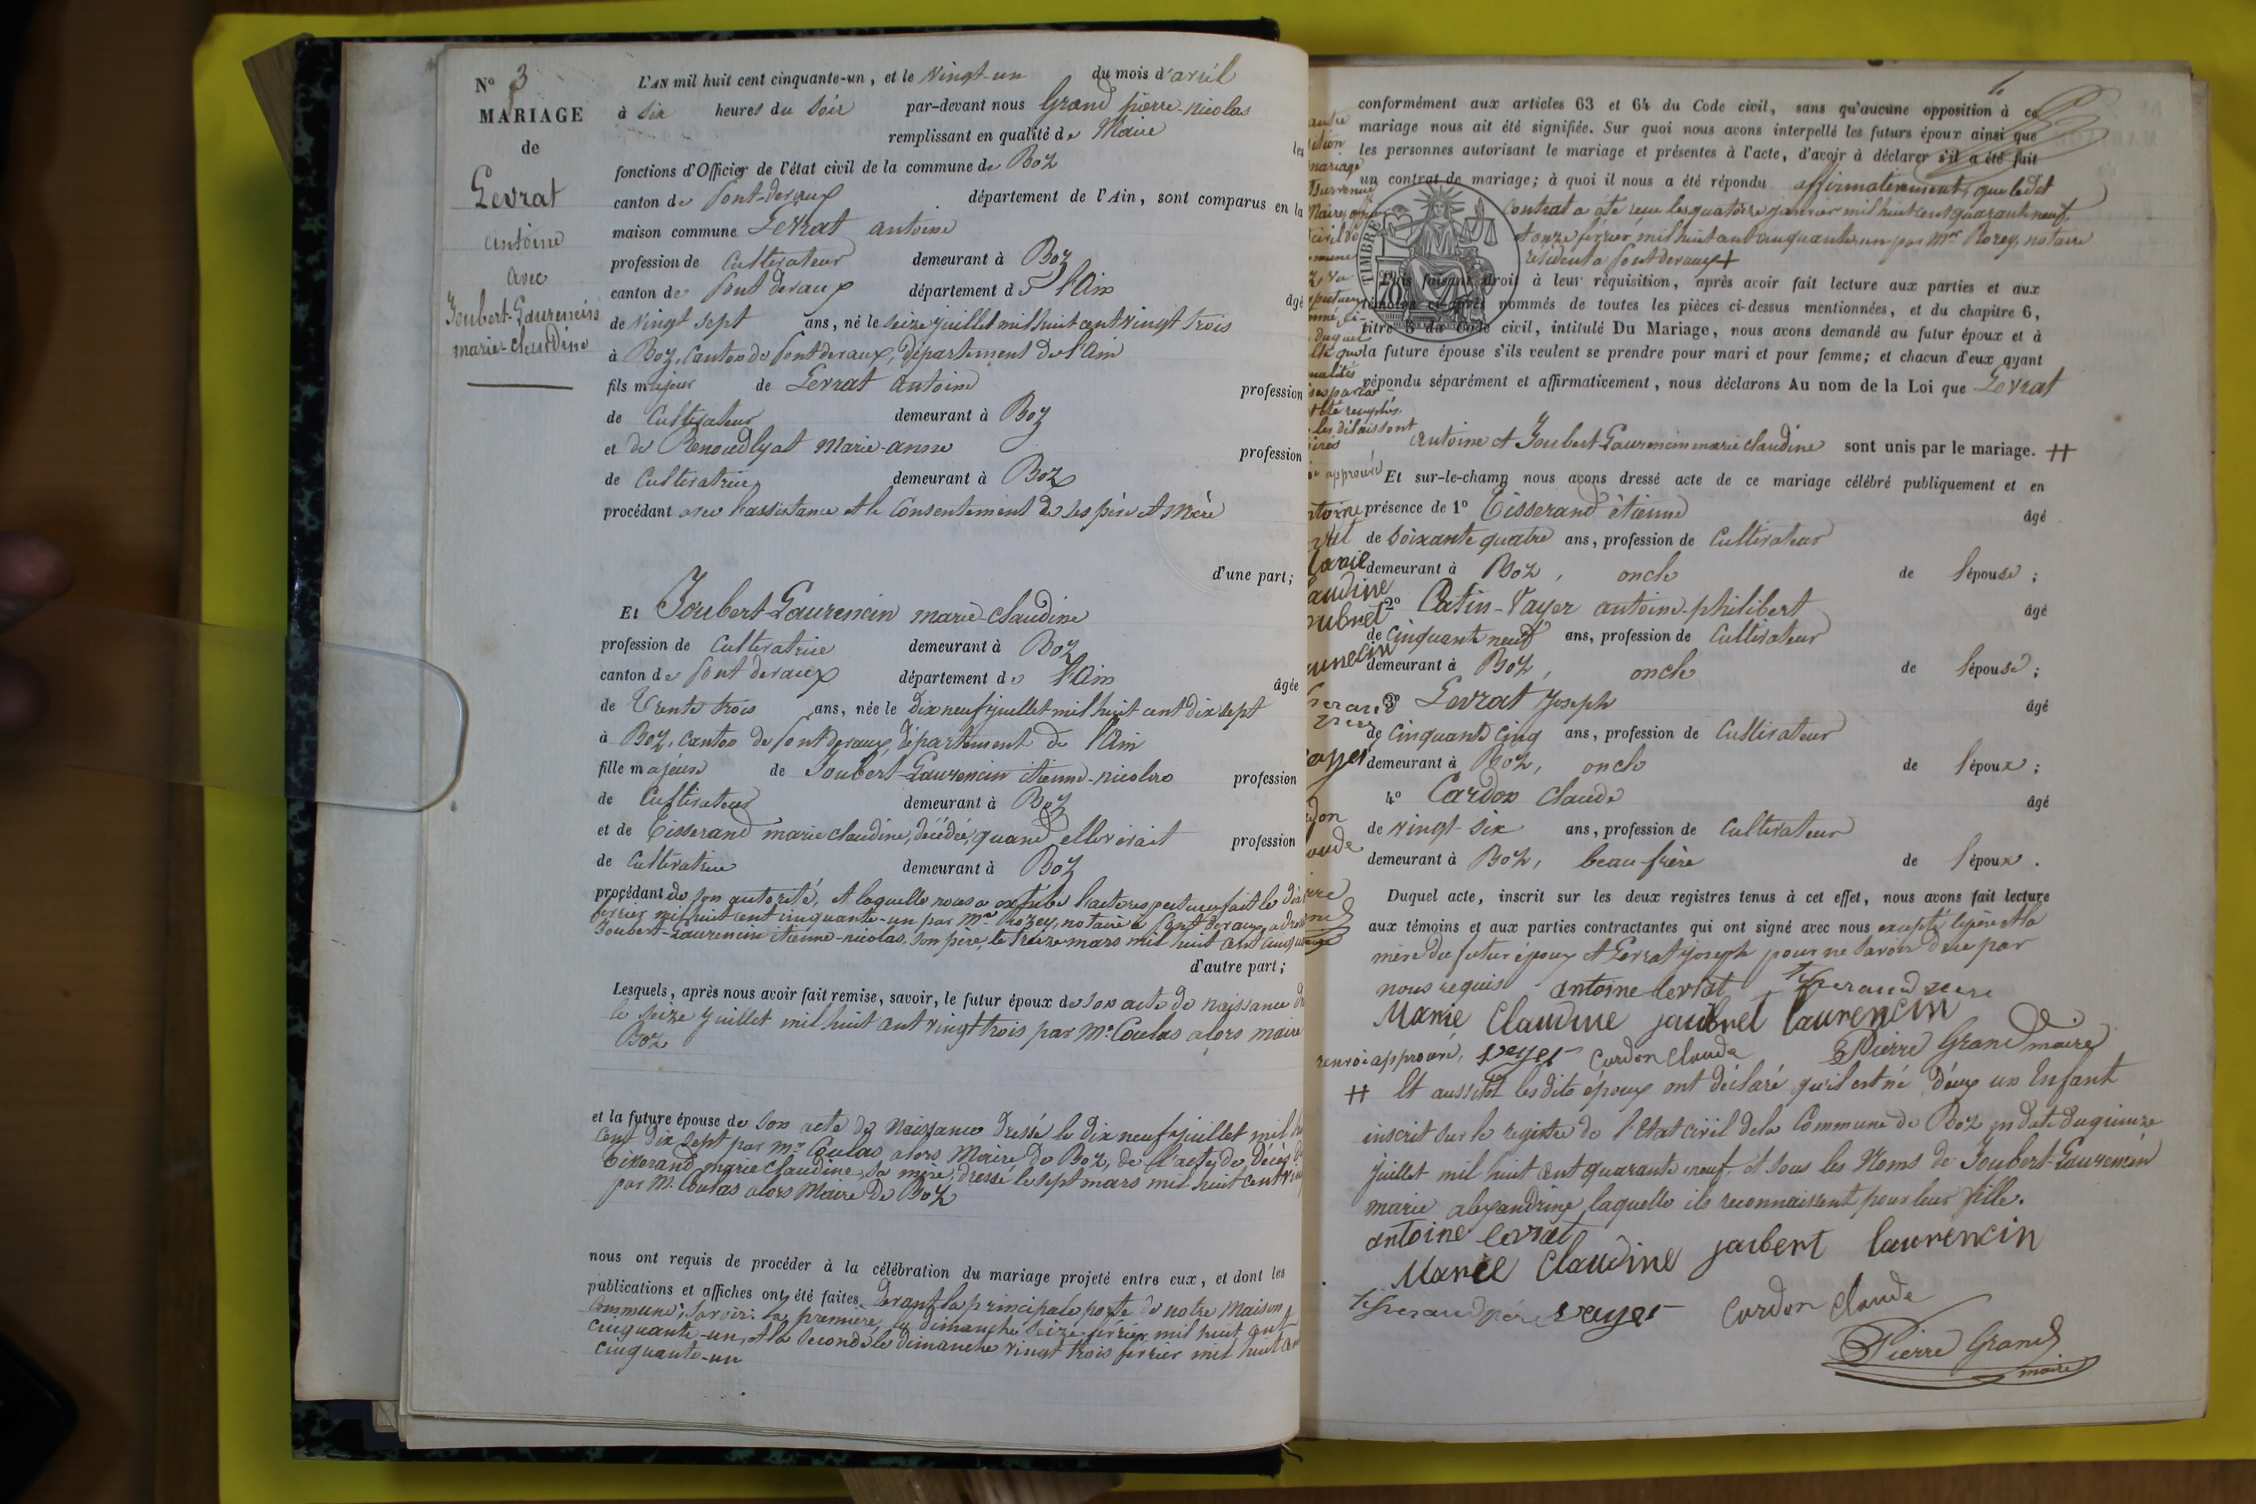 N° 3
MARIAGE
de
Levrat
antoine
avec
Joubert-Laurencin
marie-claudine
L'AN mil huit cent cinquante-un, et le vingt-un du mois d'avril
à six heures du soir par-devant nous Grand pierre-nicolas
remplissant en qualité de Maire les
fonctions d'Officier de l'état civil de la commune de Boz
canton de Pont-devaux département de l'Ain, sont comparus en la
maison commune Levrat antoine
profession de Cultivateur demeurant à Boz
canton de Pont devaux département de l'Ain âgé
de vingt sept ans, né le seize juillet mil huit cent vingt trois
à Boz, canton de Pont devaux, département de l'Ain
fils majeur de Levrat antoine profession
de Cultivateur demeurant à Boz
et de Renoud lyat Marie-anne profession
de Cultivatrice demeurant à Boz
procédant avec l'assistance et le Consentement de ses père et Mère
d'une part;
Et Joubert-Laurencin marie-claudine
profession de Cultivatrice demeurant à Boz
canton de Pont devaux département de l'Ain âgée
de Trente trois ans, née le Dix neuf juillet mil huit cent dix sept
à Boz, canton de Pont devaux, département de l'Ain
fille majeure de Joubert-Laurencin étienne-nicolas profession
de Cultivateur demeurant à Boz
et de Tisserand marie claudine, décédée, quand elle vivait profession
de Cultivatrice demeurant à Boz
procédant de son autorité, et laquelle nous a exhibé l'acte respectueux fait le dix
février mil huit cent cinquante-un par Me Rozey, notaire à Pont devaux, adressé
Joubert-Laurencin étienne-nicolas, son père, le treize mars mil huit cent cinquante
d'autre part;
Lesquels, après nous avoir fait remise, savoir, le futur époux de son acte de naissance
le seize juillet mil huit cent vingt trois par Mr Coulas alors maire
Boz
et la future épouse de son acte de Naissance Dressé le dix neuf juillet mil
cent dix sept par Mr Coulas alors Maire de Boz, de l'acte de Décès
Tisserand marie claudine, sa mère, dressé le sept mars mil huit cent
par Mr Coulas alors Maire de Boz
nous ont requis de procéder à la célébration du mariage projeté entre eux, et dont les
publications et affiches ont été faites devant la principale porte de notre Maison
Commune; Savoir: la première, le dimanche seize février mil huit cent
cinquante-un, et la seconde le dimanche vingt trois février mil huit cent
cinquante-un
conformément aux articles 63 et 64 du Code civil, sans qu'aucune opposition à ce
mariage nous ait été signifiée. Sur quoi nous avons interpellé les futurs époux ainsi que
les personnes autorisant le mariage et présentes à l'acte, d'avoir à déclarer s'il a été fait
un contrat de mariage; à quoi il nous a été répondu affirmativement, que ledit
Contrat a été reçu les quatorze janvier mil huit cent quarante neuf
et onze février mil huit cent cinquante-un par Me Rozey, notaire
résident à Pont devaux +
TIMBRE
Puis faisant droit à leur réquisition, après avoir fait lecture aux parties et aux
témoins ci-après nommés de toutes les pièces ci-dessus mentionnées, et du chapitre 6,
titre 5 du Code civil, intitulé Du Mariage, nous avons demandé au futur époux et à
la future épouse s'ils veulent se prendre pour mari et pour femme; et chacun d'eux ayant
répondu séparément et affirmativement, nous déclarons Au nom de la Loi que Levrat
antoine et Joubert-Laurencin marie claudine sont unis par le mariage. ++
Et sur-le-champ nous avons dressé acte de ce mariage célébré publiquement et en
présence de 1° Tisserand étienne âgé
de soixante quatre ans, profession de Cultivateur
demeurant à Boz, oncle de l'épouse;
2° Catin-Vayer antoine-philibert âgé
de cinquante neuf ans, profession de Cultivateur
demeurant à Boz, oncle de l'épouse;
3° Levrat Joseph âgé
de cinquante cinq ans, profession de Cultivateur
demeurant à Boz, oncle de l'époux;
4° Cardon Claude âgé
de vingt-six ans, profession de Cultivateur
demeurant à Boz, beau-frère de l'époux.
Duquel acte, inscrit sur les deux registres tenus à cet effet, nous avons fait lecture
aux témoins et aux parties contractantes qui ont signé avec nous excepté le père et la
mère du futur époux et Levrat joseph pour ne savoir de ce par
nous requis antoine levrat
Marie Claudine joubert laurencin
renvoi approuvé, vayer cardon claude Pierre Grand maire
++ Et aussitôt lesdits époux ont déclaré qu'il est né d'eux un Enfant
inscrit sur le registre de l'Etat civil de la Commune de Boz en date du quinze
juillet mil huit cent quarante neuf et sous les Noms de Joubert-Laurencin
marie alexandrine, laquelle ils reconnaissent pour leur fille.
antoine levrat
Marie Claudine joubert laurencin
vayer cardon claude
Pierre Grand
maire